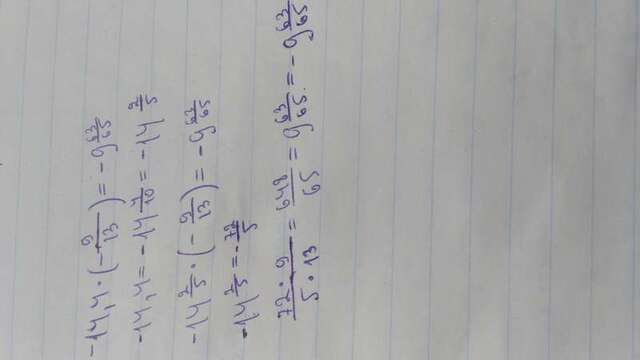 -14,4 · (-9/13) = -9 63/65
-14,4 = -14 4/10 = -14 2/5
-14 2/5 · (-9/13) = -9 63/65
-14 2/5 = -72/5
72·9/5·13 = 648/65 = 9 63/65 = -9 63/65